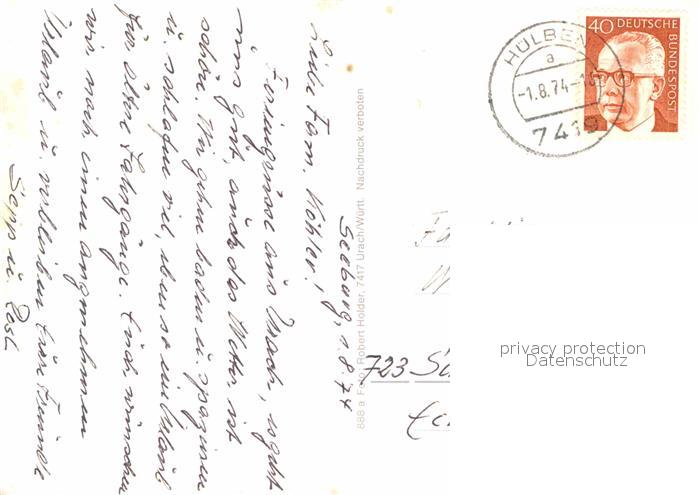 Seeburg, 1.8.74
Liebe Fam. Köhler!
Feriengrüsse aus Urach, es geht
uns gut, auch das Wetter ist
schön. Wir gehen baden u. spazieren
u. schlafen viel, eben so ein Urlaub
für ältere Jahrgänge. Euch wünschen
wir noch einen angenehmen
Urlaub u. verbleiben Eure Freunde
Sepp u. Rosl
888 a Foto: Robert Holder, 7417 Urach/Württ. Nachdruck verboten
HÜLBEN
a
-1.8.74-
7419
40 DEUTSCHE
BUNDESPOST
723
privacy protection
Datenschutz